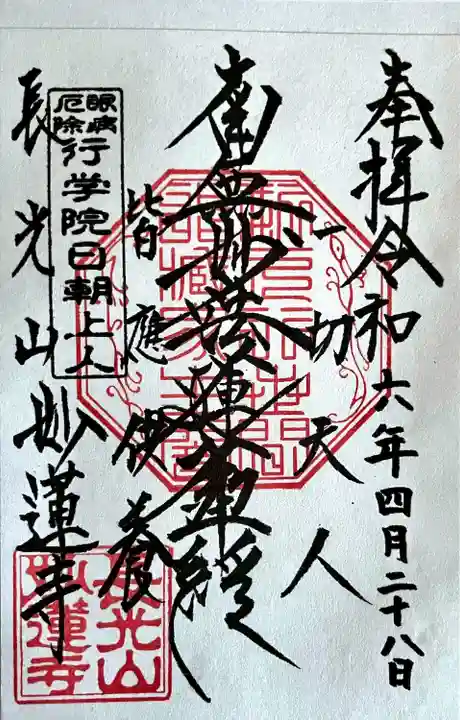 奉拝 令和六年四月二十八日
一切天人
南無妙法蓮華経
皆應供養
眼病
厄除
行学院日朝上人
長光山 妙蓮寺
長光山
妙蓮寺